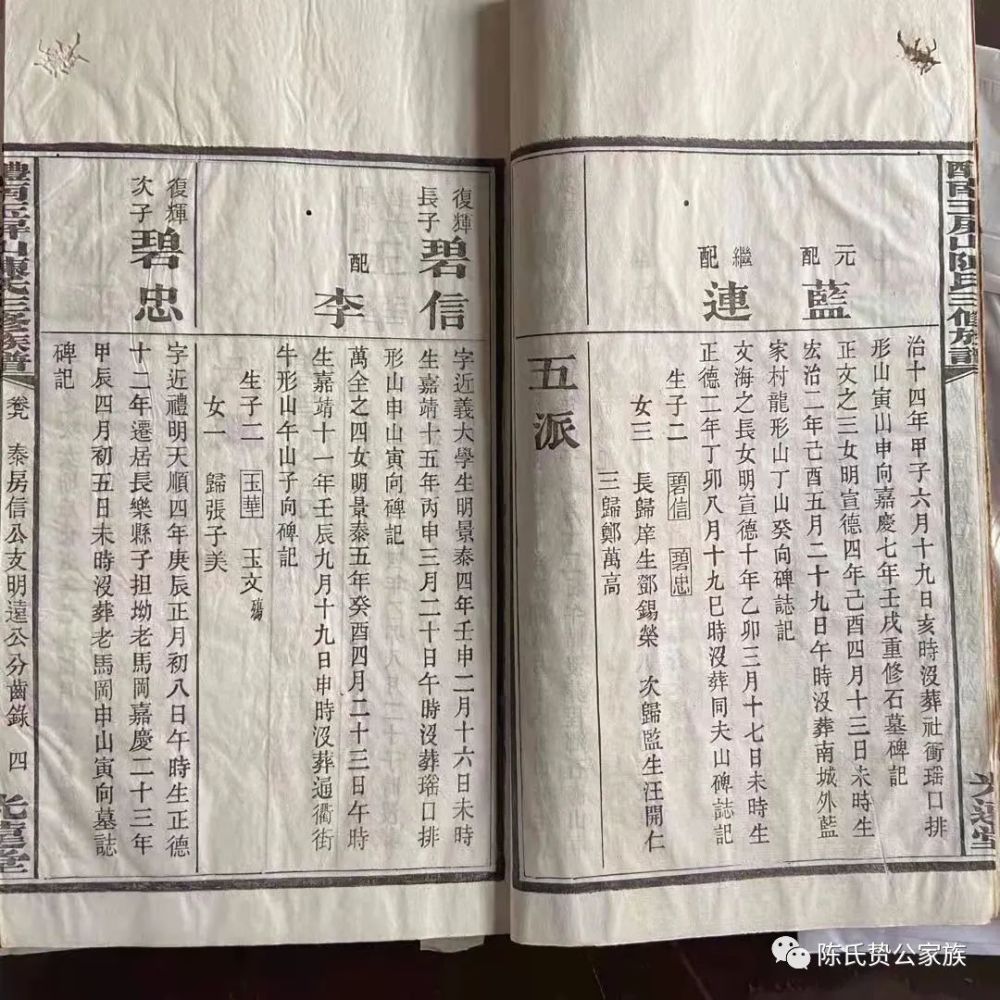 治十四年甲子六月十九日亥時沒葬社衝瑶口排
形山寅山申向嘉慶七年壬戌重修石墓碑記
元配
藍
正文之三女明宣德四年己酉四月十三日未時生
宏治二年己酉五月二十九日午時沒葬南城外藍
宋村龍形山丁山癸向碑誌記
繼配
連
文海之長女明宣德十年乙卯三月十七日未時生
正德二年丁卯八月十九巳時沒葬同夫山碑誌記
生子二 碧信 碧忠
女三 長歸庠生鄧錫榮 次歸監生汪開仁
三歸鄭萬高
五派
復輝
長子
碧信
字近義大學生明景泰四年壬申二月十六日未時
生嘉靖十五年丙申三月二十日午時沒葬瑶口排
形山申山寅向碑記
配
李
萬全之四女明景泰五年癸酉四月二十三日午時
生嘉靖十一年壬辰九月十九日申時沒葬通衢街
牛形山午山子向碑記
生子二 玉華 玉文
女一 歸張子美
復輝
次子
碧忠
字近禮明天順四年庚辰正月初八日午時生正德
十二年遷居長樂縣子担坳老馬岡嘉慶二十三年
甲辰四月初五日未時沒葬老馬岡申山寅向墓誌
碑記
卷九 泰房信公支明遠公分齒錄 四
陈氏贽公家族